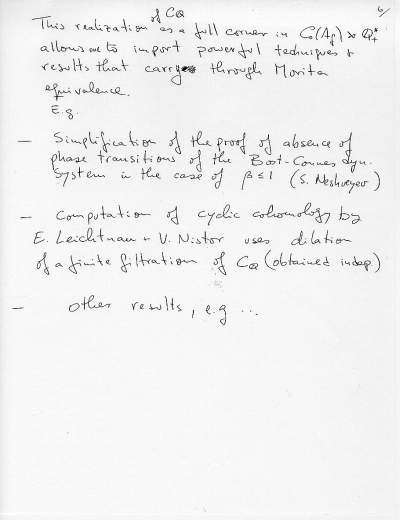 6/
This realization of C_Q as a full corner in C_0(A_f) ⋊ Q_+^*
allows one to import powerful techniques &
results that carry through Morita
equivalence.
E.g.
— Simplification of the proof of absence of
phase transitions of the Bost-Connes dyn.
system in the case of β ≤ 1 (S. Neshveyev)
— Computation of cyclic cohomology by
E. Leichtnam & V. Nistor uses dilation
of a finite filtration of C_Q (obtained indep.)
— other results, e.g ...